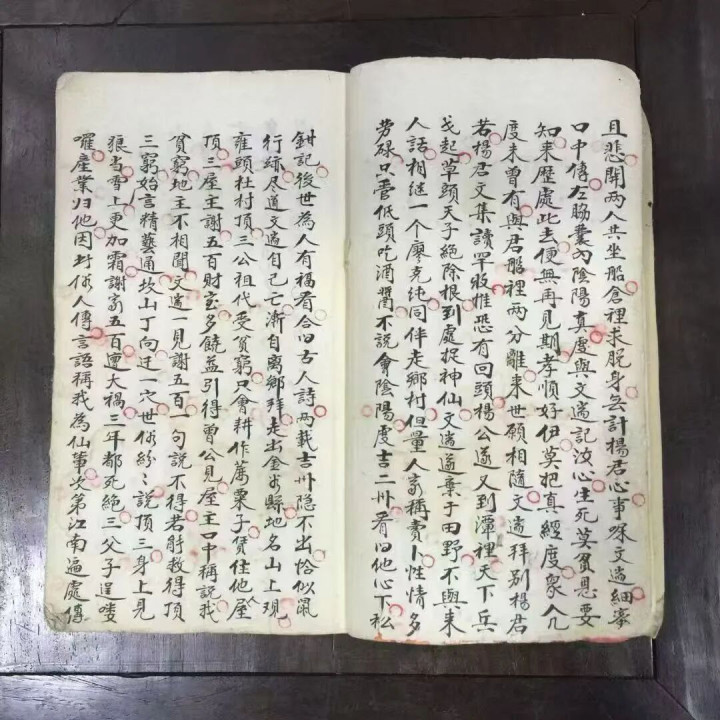 且悲開两人共坐船倉里求脱身無計楊君心事㗇文遄細拿
口中傳左脇囊内陰陽真虔與文遄記汝心生死莫貧恩要
知来歷處此去便無再見期孝順好伊莫把真經度衆人凡
度来曾有與君船裡两分離来世願相隨文遄拜别楊君
若楊君文集讀罕收惟恐有回頭楊公遂又到潭裡天下兵
戈起草頭天子絶除根到處捉神仙文遄遂棄于田野不與来
人話相继一个廖克纯同伴走鄉村但量人家稱賣卜性情多
劳碌只管低頭吃酒䦆不説會陰陽虔吉二州看旧他心下私
鉗記後世為人有福看合旧古人詩两載吉州隐不出恰似鼠
行跡尽道文遄自己亡漸自离鄉拜走出金乡縣地名山上現
雍頭杜村頂三公祖代受貧窮只會耕作蒿粟子凭住他屋
頂三屋主謝五百財宝多饒益引得曾公見屋主口中稱説我
貧窮地主不相關文遄一見謝五百一句説不得若肘救得頂
三窮始言精藝通坎山丁向迁一穴世俗紛〻説頂三身上見
狼当雪上更加霜謝家五百遭大禍三年都死絶三父子逞喽
囉産業归他因此俗人傳言語稱我為仙筆次第江南遍處傳